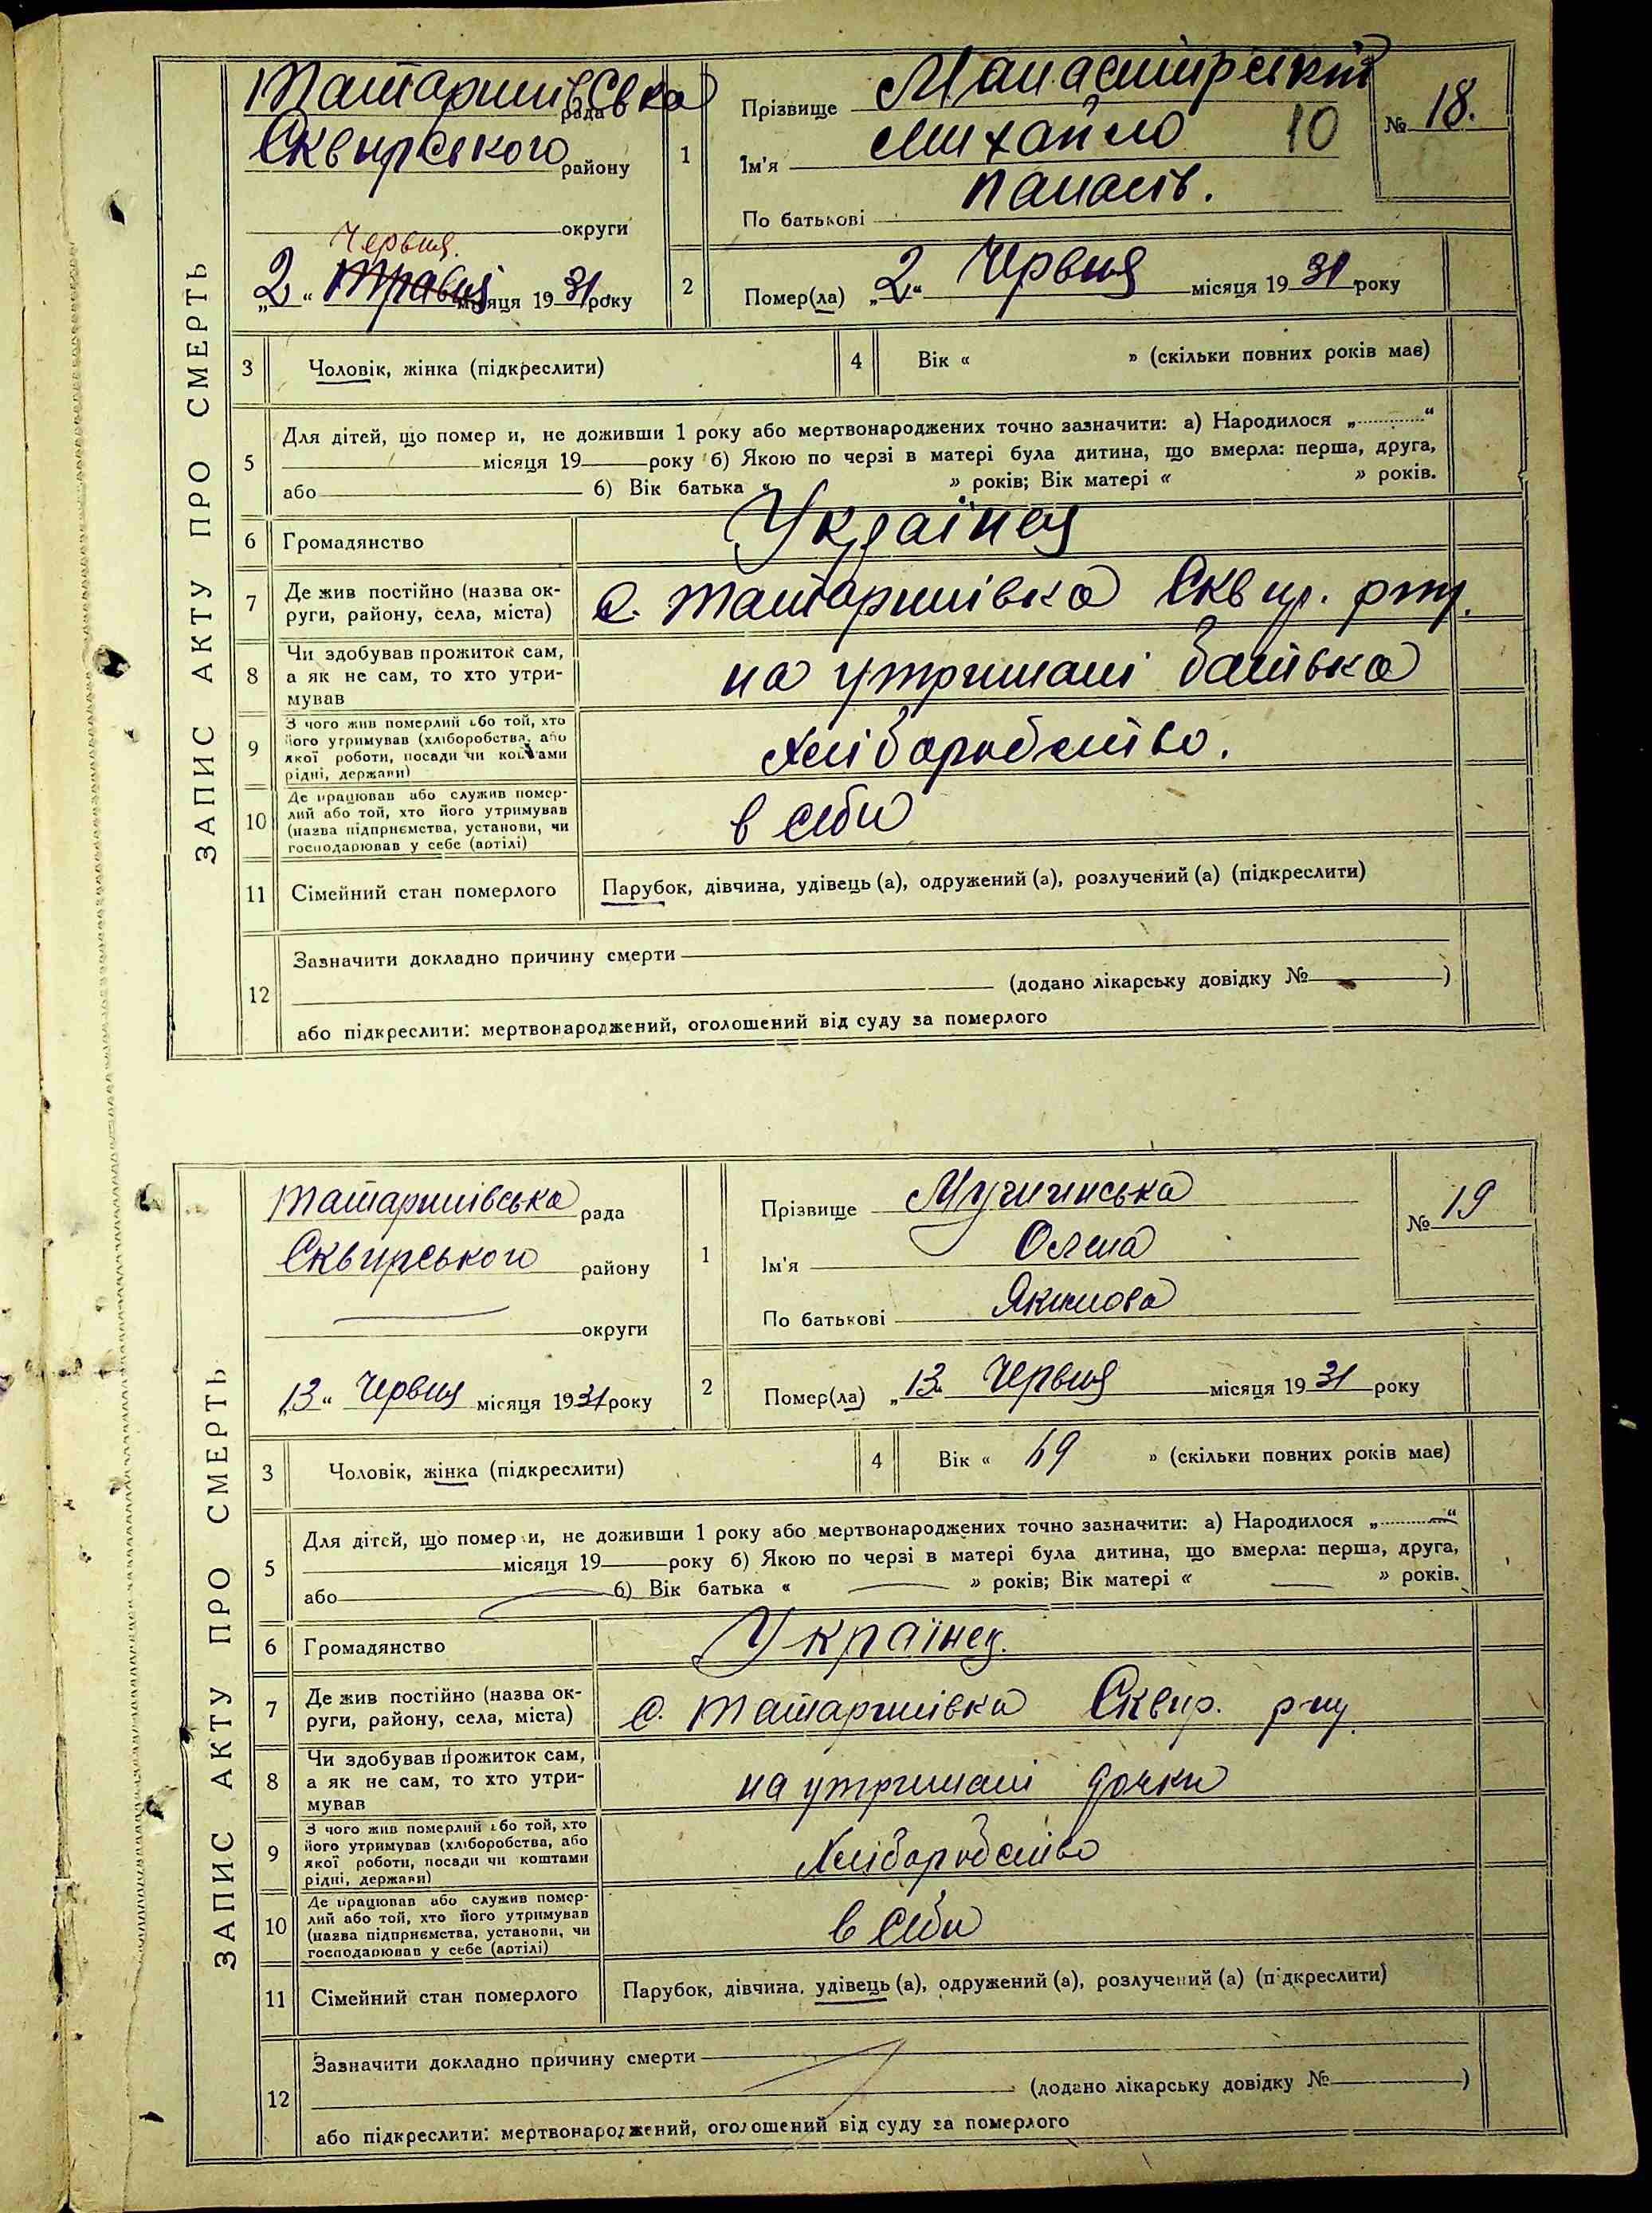 ЗАПИС АКТУ ПРО СМЕРТЬ
Татаршівська рада
Сквирського району
округи
Червця.
„2“ Травця місяця 1931 року
1
Прізвище Манастирський
Ім'я Михайло 10
По батькові Панасів.
№ 18.
2
Помер(ла) „2“ Червця місяця 1931 року
3 Чоловік, жінка (підкреслити)
4 Вік « » (скільки повних років має)
5 Для дітей, що помер и, не доживши 1 року або мертвонароджених точно зазначити: а) Народилося „ “
місяця 19 року б) Якою по черзі в матері була дитина, що вмерла: перша, друга,
або б) Вік батька « » років; Вік матері « » років.
6 Громадянство Українец
7 Де жив постійно (назва ок-
руги, району, села, міста)
с. Татаршівка Сквир. р-ну.
8 Чи здобував прожиток сам,
а як не сам, то хто утри-
мував
на утримані батька
9 З чого жив померлий або той, хто
його утримував (хліборобства, або
якої роботи, посади чи коштами
рідні, держави)
хліборобство.
10 Де працював або служив помер-
лий або той, хто його утримував
(назва підприємства, установи, чи
господарював у себе (артілі)
в себи
11 Сімейний стан померлого Парубок, дівчина, удівець (а), одружений (а), розлучений (а) (підкреслити)
12 Зазначити докладно причину смерти
(додано лікарську довідку № )
або підкреслити: мертвонароджений, оголошений від суду за померлого
ЗАПИС АКТУ ПРО СМЕРТЬ
Татаршівська рада
Сквирського району
округи
„13“ Червця місяця 1931 року
1
Прізвище Мучичинська
Ім'я Олена
По батькові Якимова
№ 19
2
Помер(ла) „13“ Червця місяця 1931 року
3 Чоловік, жінка (підкреслити)
4 Вік « 69 » (скільки повних років має)
5 Для дітей, що помер и, не доживши 1 року або мертвонароджених точно зазначити: а) Народилося „ “
місяця 19 року б) Якою по черзі в матері була дитина, що вмерла: перша, друга,
або б) Вік батька « » років; Вік матері « » років.
6 Громадянство Українец.
7 Де жив постійно (назва ок-
руги, району, села, міста)
с. Татаршівка Сквир. р-ну
8 Чи здобував прожиток сам,
а як не сам, то хто утри-
мував
на утримані дочки
9 З чого жив померлий або той, хто
його утримував (хліборобства, або
якої роботи, посади чи коштами
рідні, держави)
Хліборобство
10 Де працював або служив помер-
лий або той, хто його утримував
(назва підприємства, установи, чи
господарював у себе (артілі)
в себи
11 Сімейний стан померлого Парубок, дівчина, удівець (а), одружений (а), розлучений (а) (підкреслити)
12 Зазначити докладно причину смерти
(додано лікарську довідку № )
або підкреслити: мертвонароджений, оголошений від суду за померлого